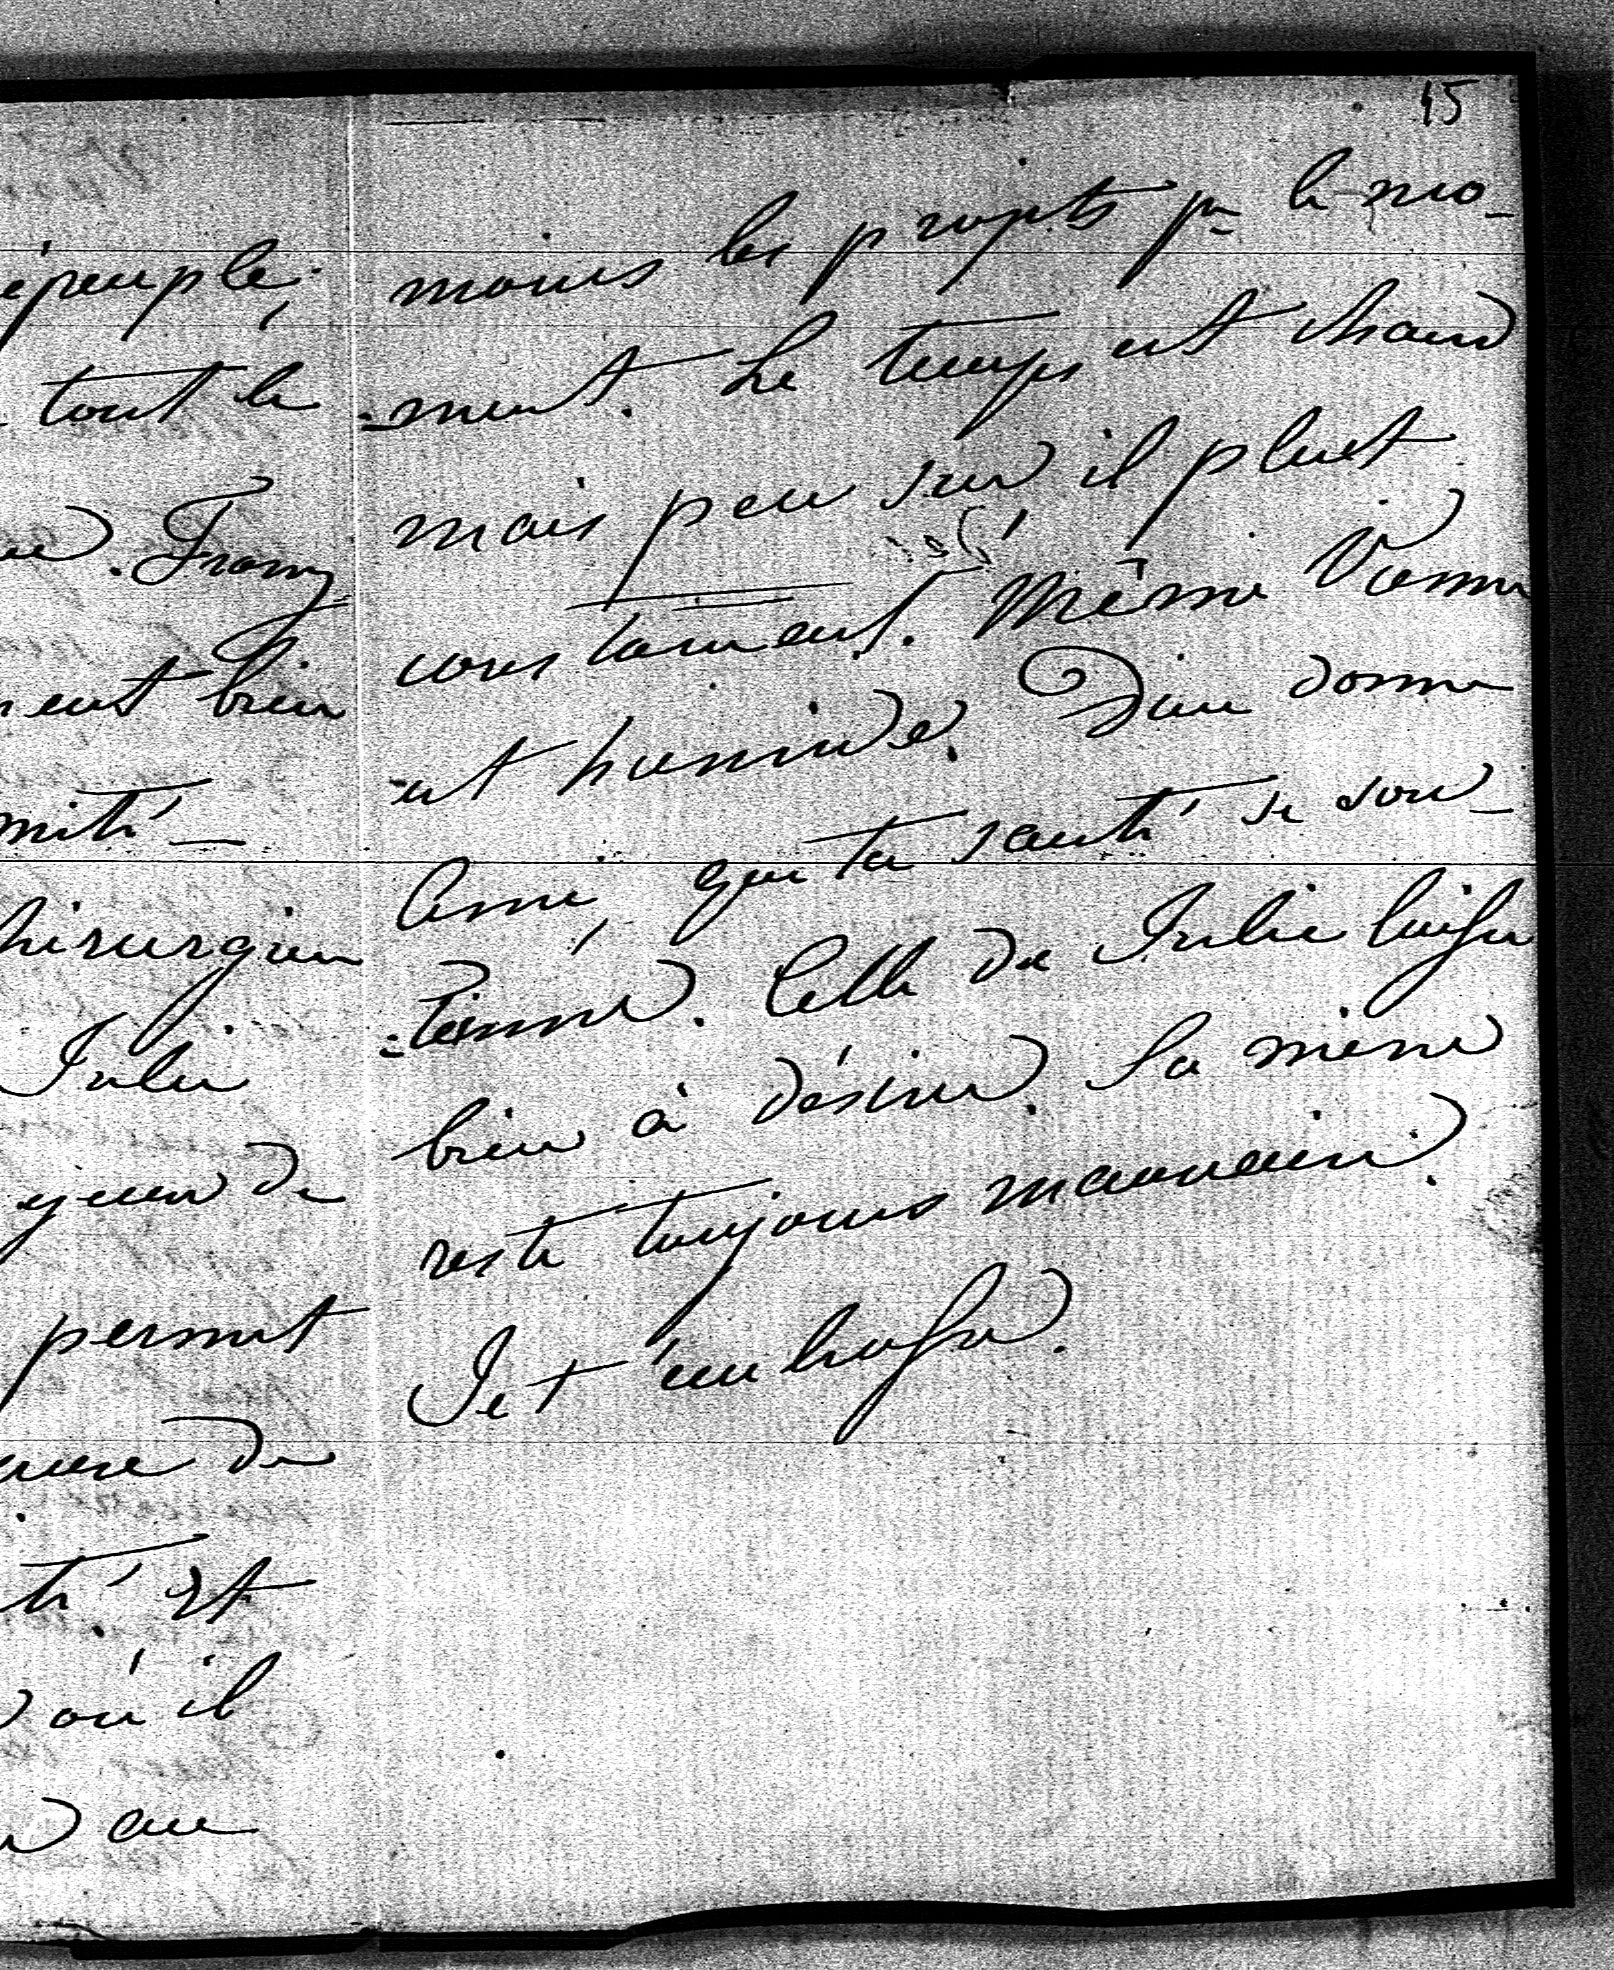 45
épeuplé;
tout le
Franz
ent bien
mité —
hirurgien
Julie
yeux de
permet
de
té et
où il
au
moins les projets pr le mo-
-ment. Le temps est chaud
mais peu sur, il pluet
constament. Même Vienne
est humide. Dieu donne
Ami, que ta santé se sou-
-tienne. Celle de Julie laisse
bien à désirer. Sa mine
reste toujours mauvaise.
Je t'embrasse.